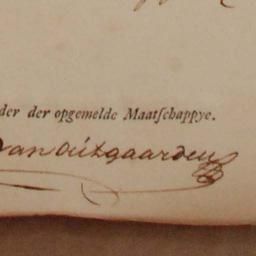 der der opgemelde Maatſchappye.
van Outgaarden